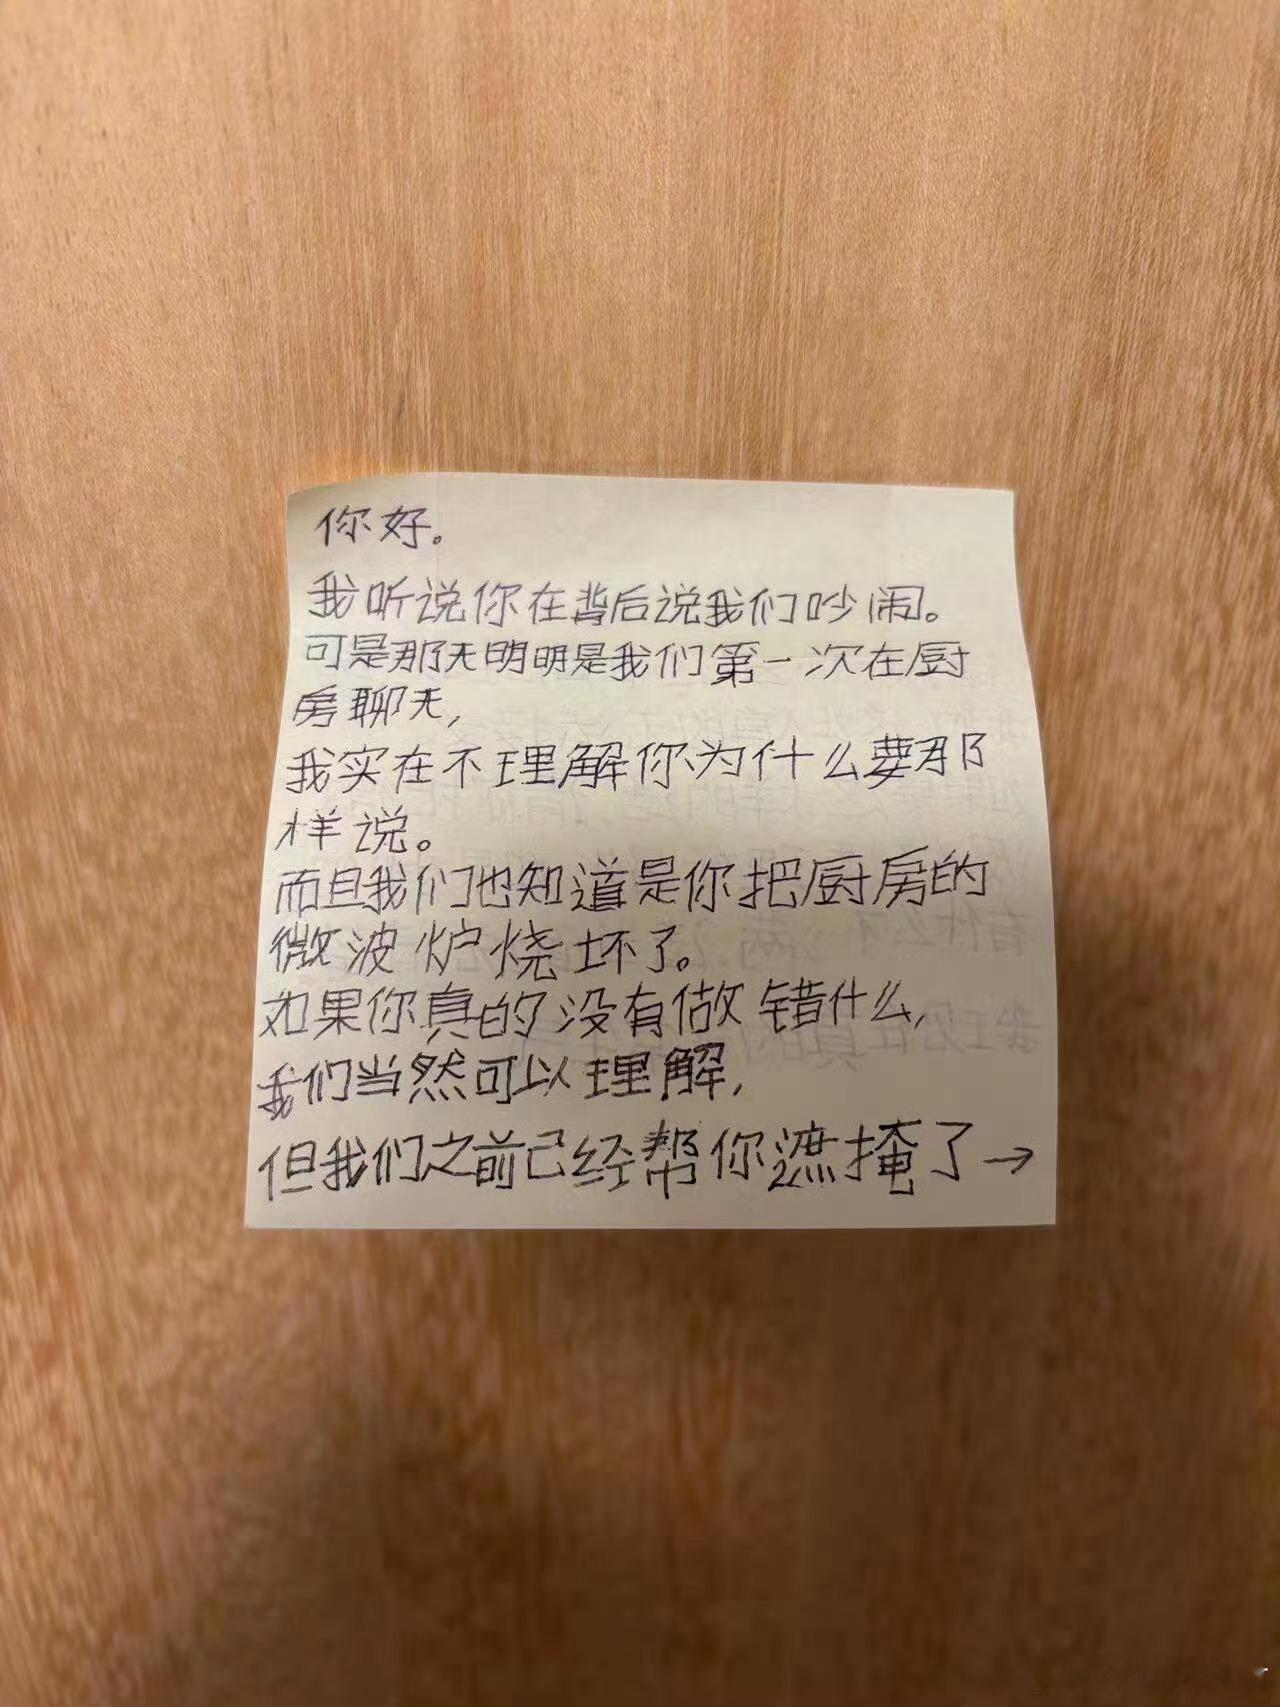 你好。
我听说你在背后说我们吵闹。
可是那天明明是我们第一次在厨
房聊天,
我实在不理解你为什么要那
样说。
而且我们也知道是你把厨房的
微波炉烧坏了。
如果你真的没有做错什么,
我们当然可以理解,
但我们之前已经帮你遮掩了→